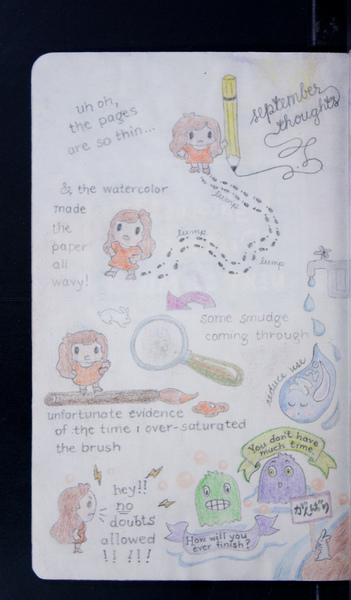 uh oh,
the pages
are so thin...
september
thoughts
lump
& the watercolor
made
the
paper
all
wavy!
lump
lump
some smudge
coming through
reduce use
unfortunate evidence
of the time i over-saturated
the brush
You don't have
much time
hey!!
no
doubts
allowed
!! !!!
How will you
ever finish?
がんばり